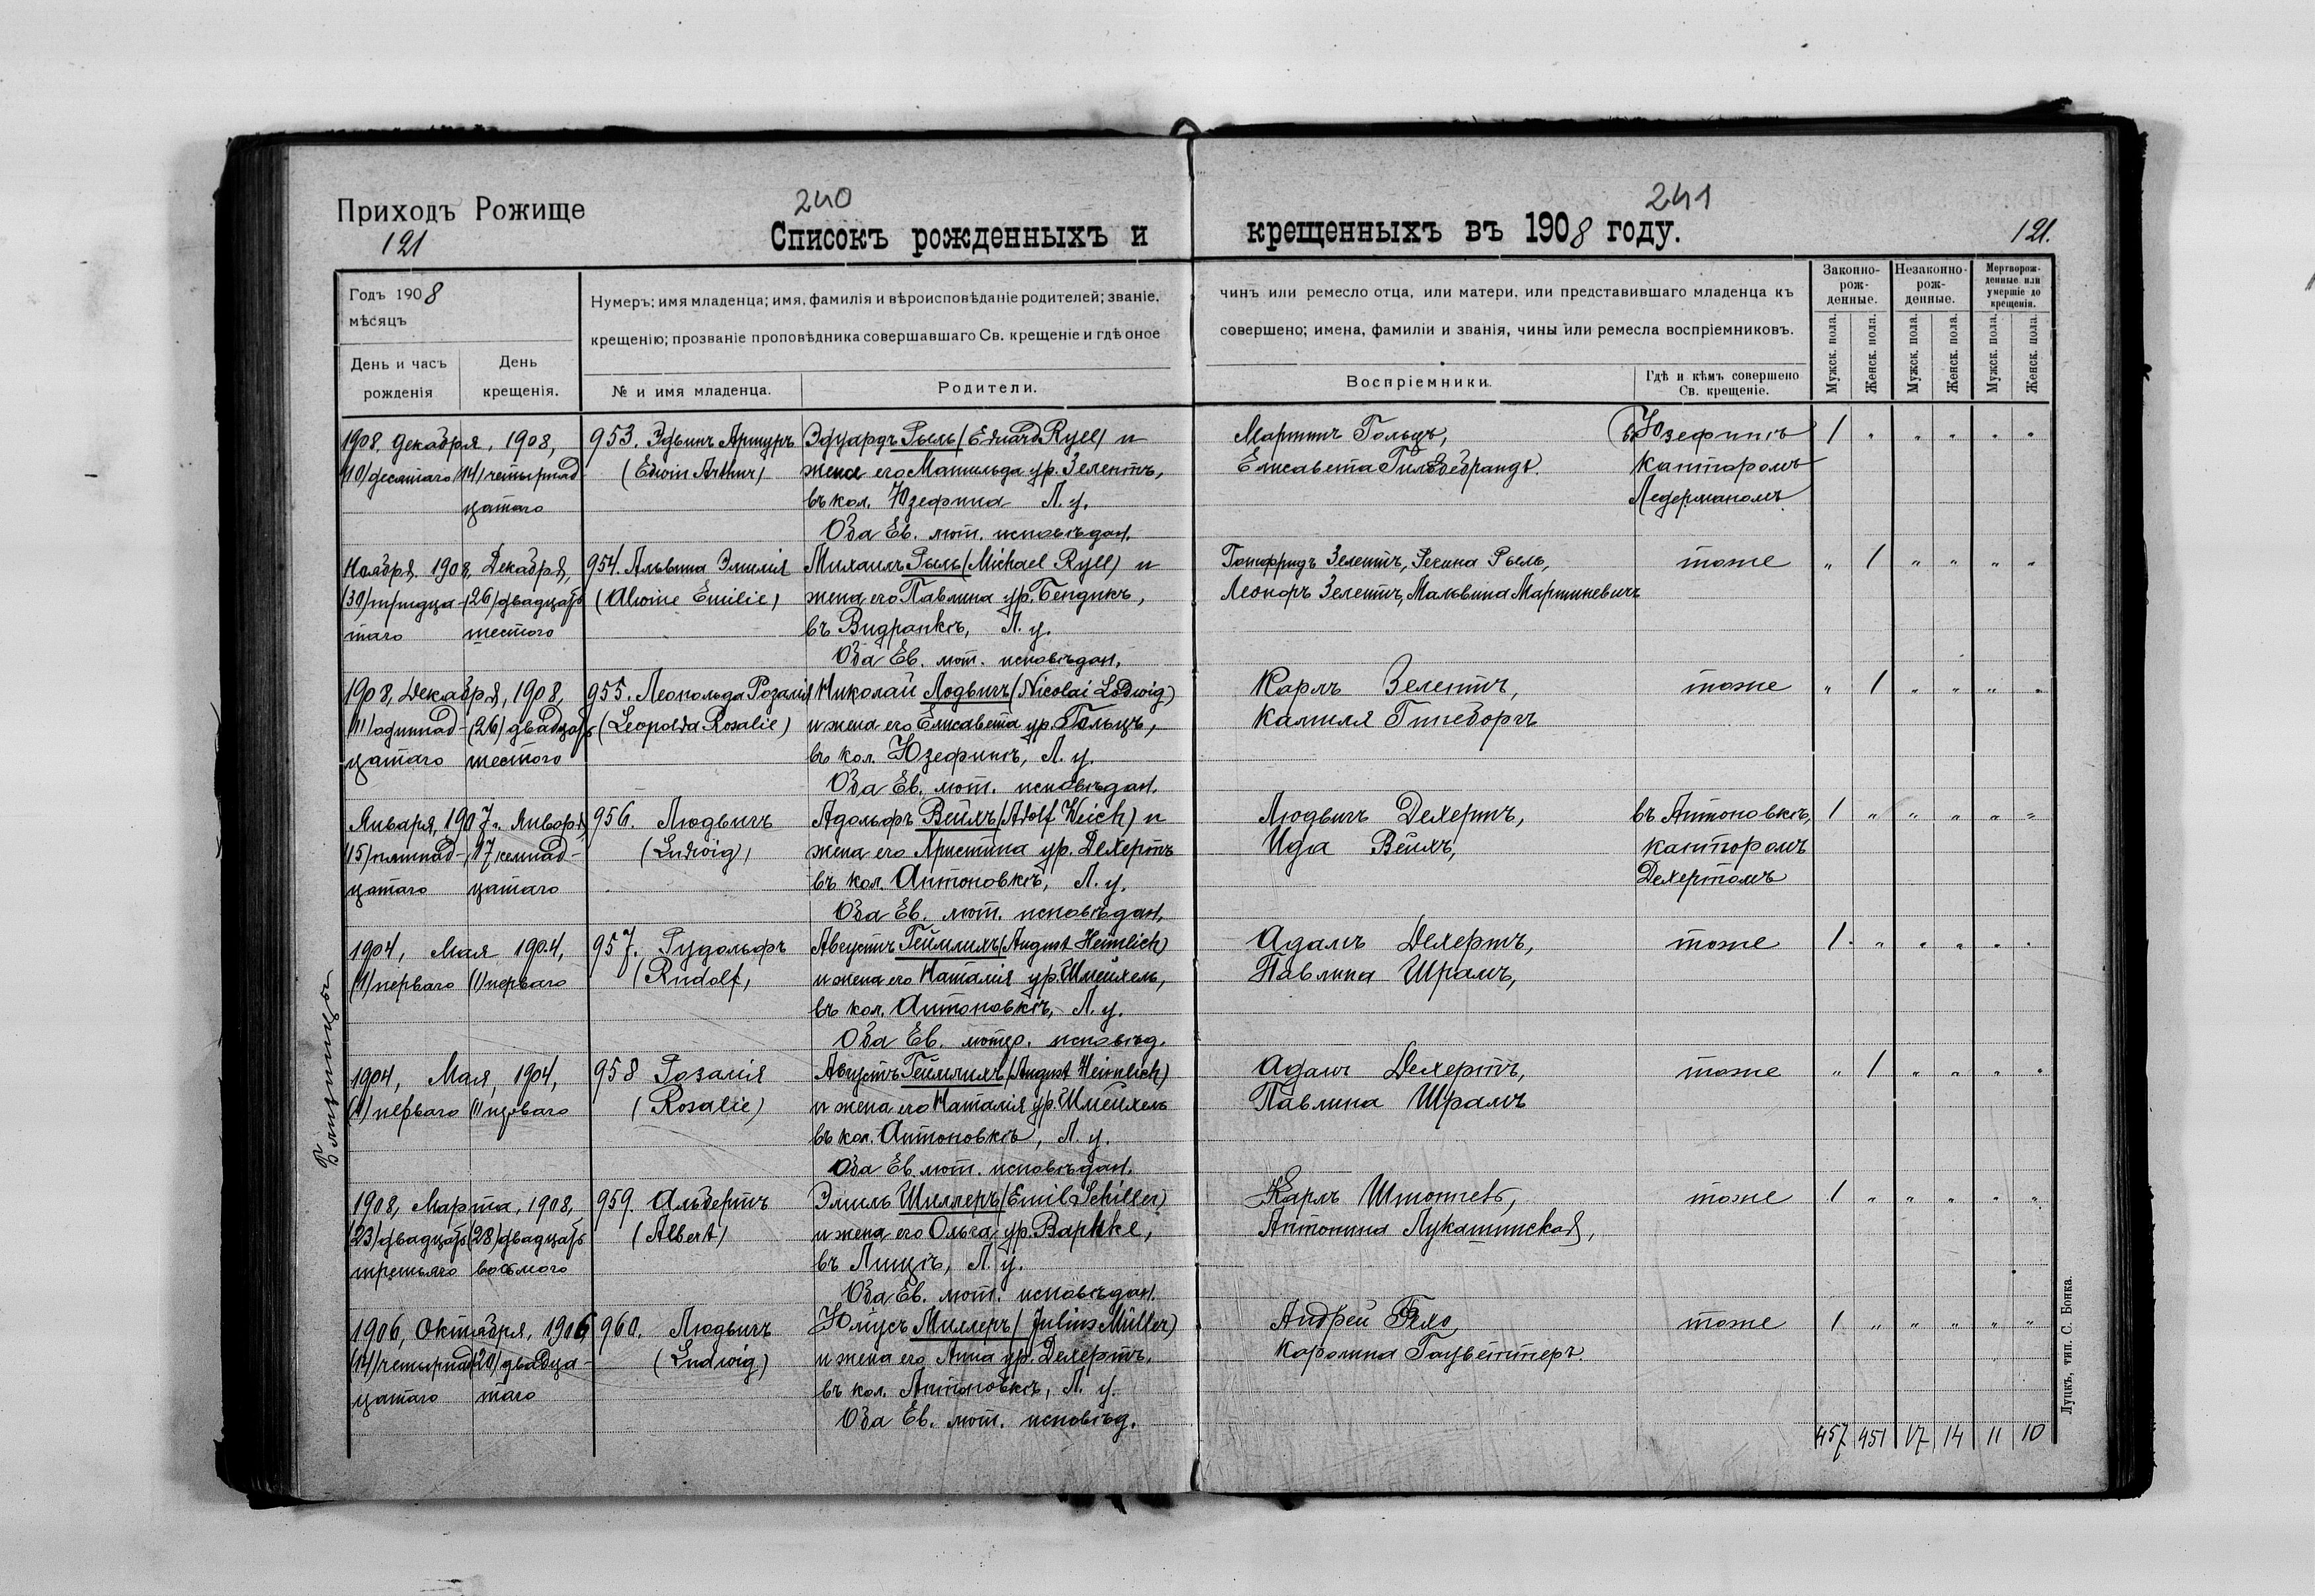 Приходъ Рожище
240
241
121
121.
Списокъ рожденныхъ и крещенныхъ въ 1908 году.
Годъ 1908
мѣсяцъ
День и часъ рожденія
День крещенія.
Нумеръ; имя младенца; имя, фамилія и вѣроисповѣданіе родителей; званіе, чинъ или ремесло отца, или матери, или представившаго младенца къ
крещенію; прозваніе проповѣдника совершавшаго Св. крещеніе и гдѣ оное совершено; имена, фамиліи и званія, чины или ремесла воспріемниковъ.
№ и имя младенца.
Родители.
Воспріемники.
Гдѣ и кѣмъ совершено Св. крещеніе.
Законно-рож-денные.
Незаконно-рож-денные.
Мертворож-денные или умершіе до крещенія.
Мужск. пола. Женск. пола. Мужск. пола. Женск. пола. Мужск. пола. Женск. пола.
1908, декабря, 1908, 953. Эдвинъ Артуръ Эдуардъ Рыль (Eduard Ryll) и Мартинъ Гольцъ, въ Юзефинѣ 1 " " " " "
(10) десятаго (14) четырнад- (Edwin Arthur) жена его Матильда ур. Зелентъ, Елисавета Гильдебрандъ. канторомъ
цатаго въ кол. Юзефина Л. у. Ледерманомъ
Оба Ев. лют. исповѣдан.
Ноября, 1908, Декабря, 954. Альвина Эмилія Михаилъ Рыль (Michael Ryll) и Готфридъ Зелентъ, Регина Рыль, тоже " 1 " " " "
(30) тридца- (26) двадцать (Alwine Emilie) жена его Павлина ур. Бендикъ, Леоноръ Зелентъ, Мальвина Мартинкевичъ
таго шестого въ Видранкѣ, Л. у.
Оба Ев. лют. исповѣдан.
1908, Декабря, 1908, 955. Леопольда Розалія Николай Лодвигъ (Nicolai Lodwig) Карлъ Зелентъ, тоже " 1 " " " "
(11) одиннад- (26) двадцать (Leopolda Rosalie) и жена его Елисавета ур. Гольцъ, Камиля Гинсборгъ
цатаго шестого въ кол. Юзефинѣ, Л. у.
Оба Ев. лют. исповѣдан.
Января, 1907, Января, 956. Людвигъ Адольфъ Вейхъ (Adolf Weich) и Людвигъ Дехертъ, въ Антоновкѣ, 1 " " " " "
15) пятнад- 17) семнад- (Ludwig) жена его Христина ур. Дехертъ Ида Вейхъ, канторомъ
цатаго цатаго въ кол. Антоновкѣ, Л. у. Дехертомъ
Оба Ев. лют. исповѣдан.
1904, Мая 1904, 957. Рудольфъ Августъ Геймлихъ (August Heimlich) Адамъ Дехертъ, тоже 1 " " " " "
(1) перваго (1) перваго (Rudolf) и жена его Наталія ур. Шмейхель, Павлина Шрамъ,
въ кол. Антоновкѣ, Л. у.
Оба Ев. лютер. исповѣд.
Близнецы
1904, Мая, 1904, 958 Розалія Августъ Геймлихъ (August Heimlich) Адамъ Дехертъ, тоже " 1 " " " "
(1) перваго (1) перваго (Rosalie) и жена его Наталія ур. Шмейхель Павлина Шрамъ
въ кол. Антоновкѣ, Л. у.
Оба Ев. лют. исповѣдан.
1908, Марта, 1908, 959. Альбертъ Эмиль Шиллеръ (Emil Schiller) Карлъ тоже 1 " " " " "
(23) двадцать (28) двадцать (Albert) и жена его Ольга ур. Варнке, Антонина Лукашинская,
третьяго восьмого въ Липцѣ, Л. у.
Оба Ев. лют. исповѣдан.
1906, Октября, 1906 960. Людвигъ Юліусъ Миллеръ (Julius Müller) Андрей тоже 1 " " " " "
(14) четырнад- (20) двадца- (Ludwig) и жена его Анна ур. Дехертъ, Каролина
цатаго таго въ кол. Антоновкѣ, Л. у.
Оба Ев. лют. исповѣд.
457 451 17 14 11 10
Луцкъ, тип. С. Бонка.